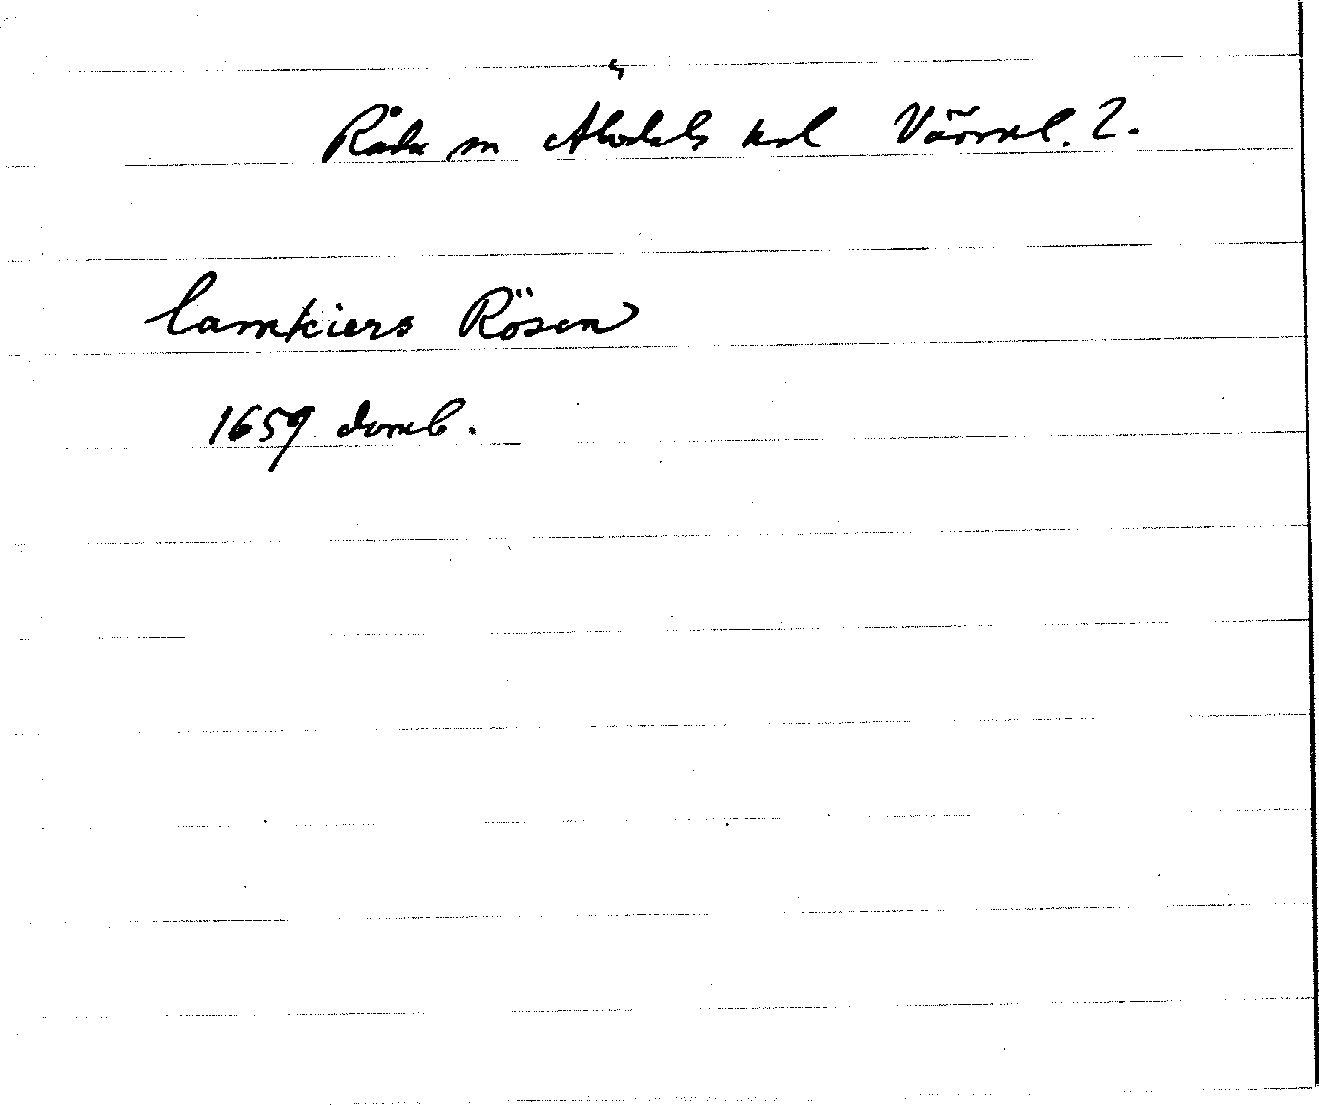 Råda sn Älvdals hd Värml. L.
Camkiers Rösen
1659 domb.